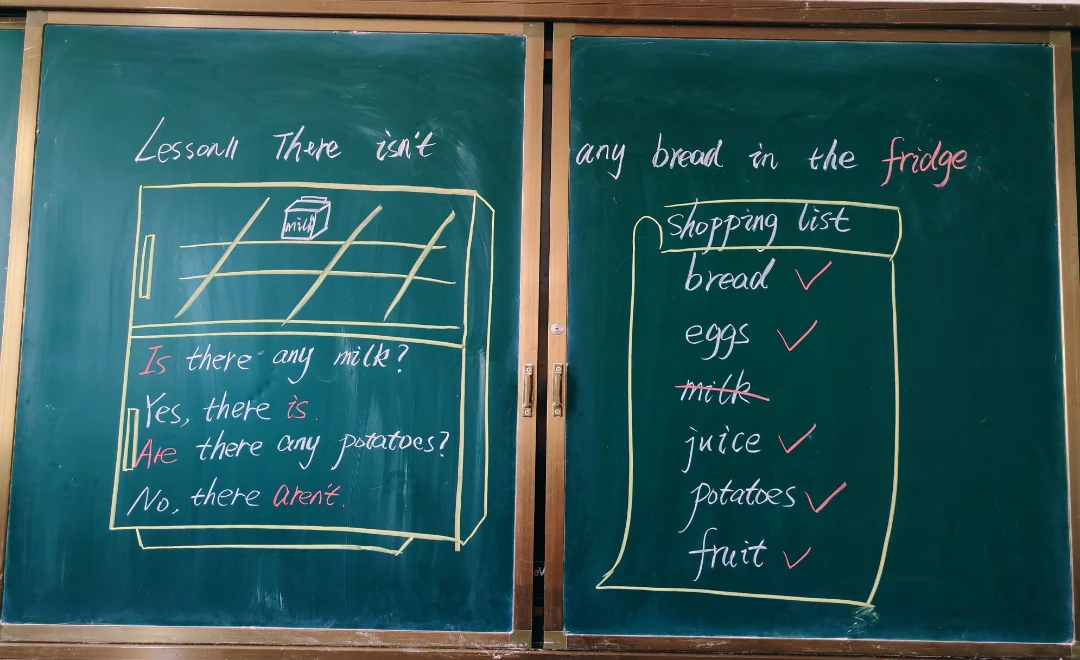 Lesson11 There isn't any bread in the fridge
milk
Is there any milk?
Yes, there is.
Are there any potatoes?
No, there aren't.
shopping list
bread ✓
eggs ✓
milk
juice ✓
potatoes ✓
fruit ✓